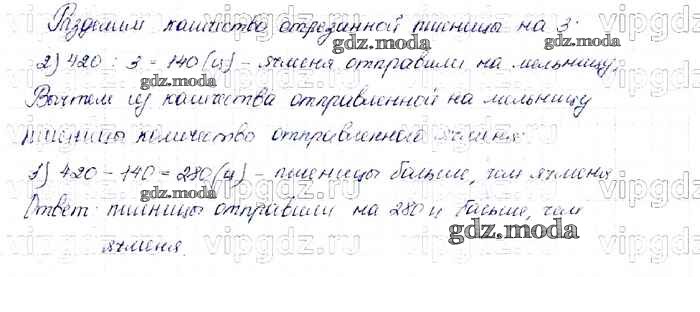 Разделим количества отрезанной пшеницы на 3:
gdz.moda
2) 420 : 3 = 140 (ц) - ячменя отправили на мельницу,
gdz.moda gdz.moda
Вычтем из количества отправленной на мельницу
пшеницы количество отправленного ячменя:
3) 420 - 140 = 280 (ц) - пшеницы больше, чем ячменя
gdz.moda gdz.moda
Ответ: пшеницы отправили на 280 ц больше, чем
ячменя.
gdz.moda
vipgdz.ru